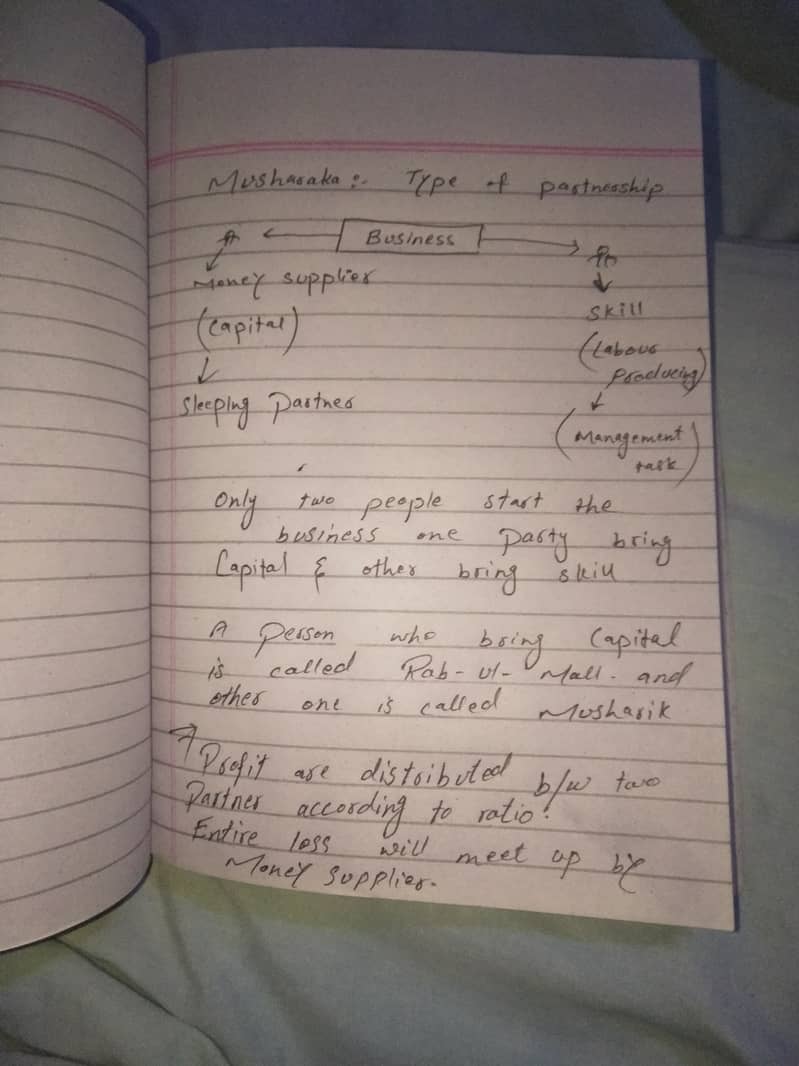 Musharaka :- Type of partnership
Business
Money supplier
(Capital)
Sleeping Partner
Skill
(Labour
Producing)
(Management
task)
Only two people start the
business one party bring
Capital & other bring skill
A person who bring Capital
is called Rab-ul-Mall. and
other one is called Musharik
Profit are distributed b/w two
Partner according to ratio.
Entire loss will meet up by
Money supplier.